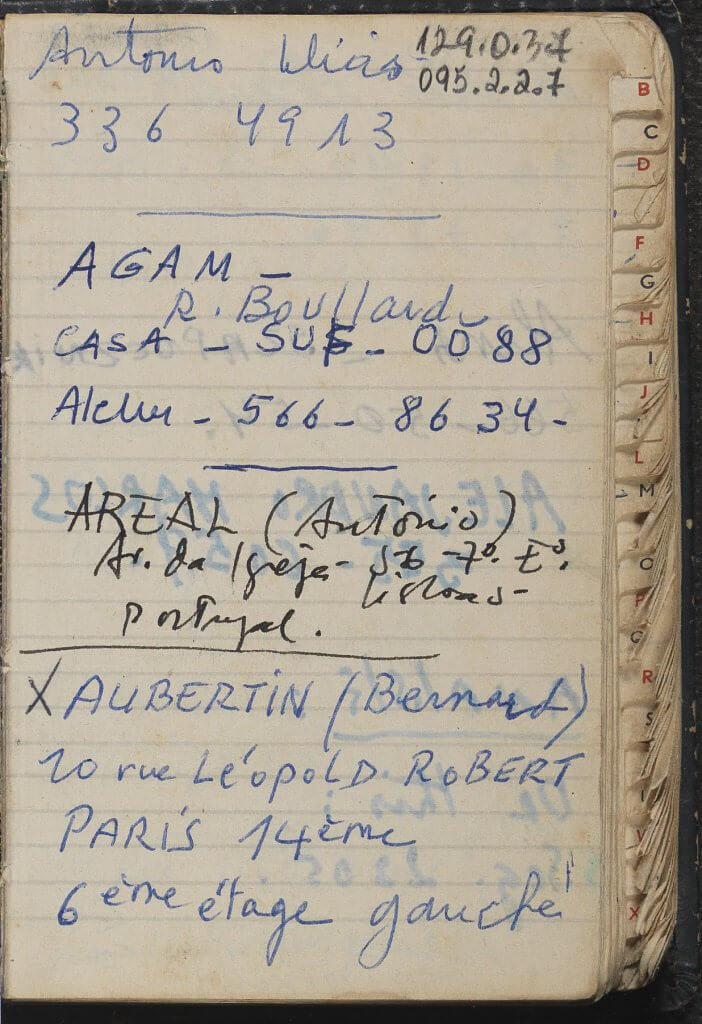 Antonio Dias
129.0.37
095.2.2.7
336 4913
AGAM -
R. Boullard
CASA - SUF - 0088
566 - 86 34 -
AREAL (António)
Av. da Igreja - - 7º. Eº.
Lisboa -
Portugal.
X AUBERTIN (Bernard)
10 rue LéopoLD RoBERT
PARIS 14ème
6 ème étage gauche
B
C
D
F
G
H
I
J
L
M
O
P
R
S
X